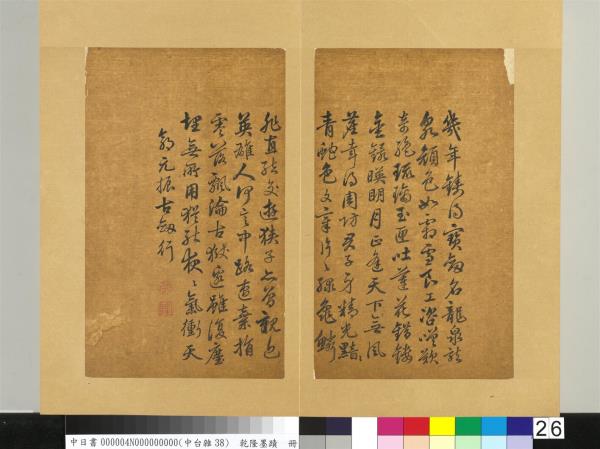 幾年鑄得寶劍名龍泉龍
泉顏色如霜雪良工咨嗟歎
奇絕琉璃玉匣吐蓮花錯鏤
金鐶暎明月正逢天下無風
塵幸得周防君子身精光黯
青蛇色文章片〻綠龜鱗
非直結交遊俠子亦曾親近
英雄人何言中路遭棄捐
零落飄淪古獄邊雖復塵
埋無所用猶能夜〻氣衝天
郭元振古劍行
中日書000004N000000000(中台雜38) 乾隆墨蹟 冊
26